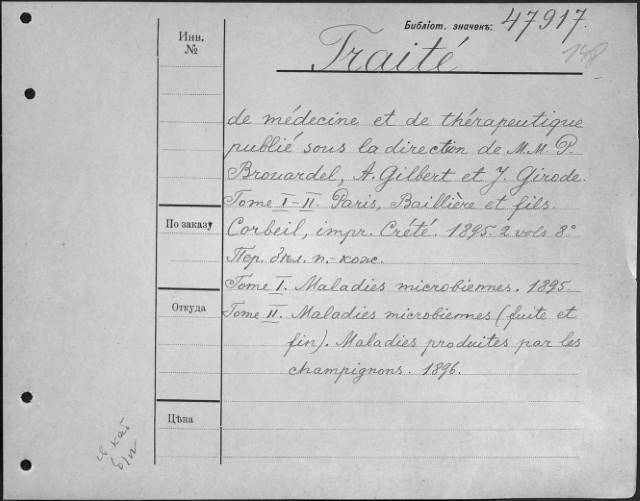 Библіот. значекъ: 47917.
Инв.
№
Traité
de médecine et de thérapeutique
publié sous la direction de M.M. P.
Brouardel, A. Gilbert et J. Girode.
Tome I-II. Paris, Baillière et fils.
По заказу
Corbeil, impr. Crété. 1895. 2 vols 8°
Пер. дкл. п.-кож.
Tome I. Maladies microbiennes. 1895
Откуда
Tome II. Maladies microbiennes (fuite et
fin). Maladies produites par les
champignons. 1896.
Цѣна